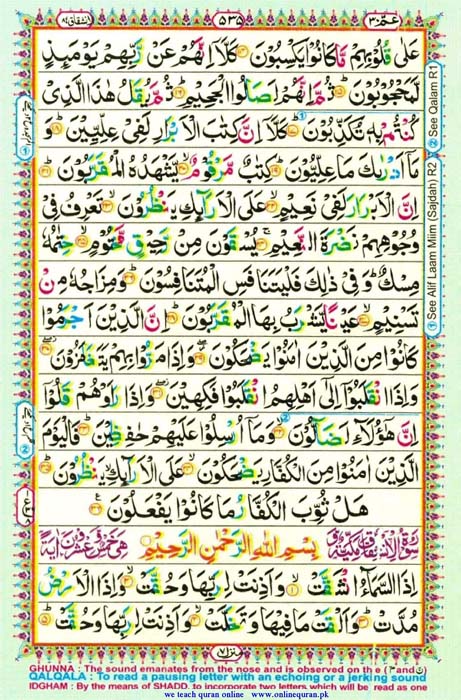 عـمّ ٣٠ ٥٣٥ انشقاق ٨٤
عَلٰى قُلُوْبِهِمْ مَّا كَانُوْا يَكْسِبُوْنَ ﴿١٤﴾ كَلَّاۤ اِنَّهُمْ عَنْ رَّبِّهِمْ يَوْمَئِذٍ
لَّمَحْجُوْبُوْنَ ﴿١٥﴾ ثُمَّ اِنَّهُمْ لَصَالُوا الْجَحِيْمِ ﴿١٦﴾ ثُمَّ يُقَالُ هٰذَا الَّذِيْ
كُنْتُمْ بِهٖ تُكَذِّبُوْنَ ﴿١٧﴾ كَلَّاۤ اِنَّ كِتٰبَ الْاَبْرَارِ لَفِيْ عِلِّيِّيْنَ ﴿١٨﴾ وَ
مَاۤ اَدْرٰىكَ مَا عِلِّيُّوْنَ ﴿١٩﴾ كِتٰبٌ مَّرْقُوْمٌ ﴿٢٠﴾ يَّشْهَدُهُ الْمُقَرَّبُوْنَ ﴿٢١﴾
اِنَّ الْاَبْرَارَ لَفِيْ نَعِيْمٍ ﴿٢٢﴾ عَلَى الْاَرَآئِكِ يَنْظُرُوْنَ ﴿٢٣﴾ تَعْرِفُ فِيْ
وُجُوْهِهِمْ نَضْرَةَ النَّعِيْمِ ﴿٢٤﴾ يُسْقَوْنَ مِنْ رَّحِيْقٍ مَّخْتُوْمٍ ﴿٢٥﴾ خِتٰمُهٗ
مِسْكٌ وَفِيْ ذٰلِكَ فَلْيَتَنَافَسِ الْمُتَنَافِسُوْنَ ﴿٢٦﴾ وَمِزَاجُهٗ مِنْ
تَسْنِيْمٍ ﴿٢٧﴾ عَيْنًا يَّشْرَبُ بِهَا الْمُقَرَّبُوْنَ ﴿٢٨﴾ اِنَّ الَّذِيْنَ اَجْرَمُوْا
كَانُوْا مِنَ الَّذِيْنَ اٰمَنُوْا يَضْحَكُوْنَ ﴿٢٩﴾ وَاِذَا مَرُّوْا بِهِمْ يَتَغَامَزُوْنَ ﴿٣٠﴾
وَاِذَا انْقَلَبُوْۤا اِلٰۤى اَهْلِهِمُ انْقَلَبُوْا فَكِهِيْنَ ﴿٣١﴾ وَاِذَا رَاَوْهُمْ قَالُوْۤا
اِنَّ هٰۤؤُلَآءِ لَضَآلُّوْنَ ﴿٣٢﴾ وَمَاۤ اُرْسِلُوْا عَلَيْهِمْ حٰفِظِيْنَ ﴿٣٣﴾ فَالْيَوْمَ
الَّذِيْنَ اٰمَنُوْا مِنَ الْكُفَّارِ يَضْحَكُوْنَ ﴿٣٤﴾ عَلَى الْاَرَآئِكِ يَنْظُرُوْنَ ﴿٣٥﴾
هَلْ ثُوِّبَ الْكُفَّارُ مَا كَانُوْا يَفْعَلُوْنَ ﴿٣٦﴾
سُوْرَةُ الْاِنْشِقَاقِ مَكِّيَّةٌ بِسْمِ اللّٰهِ الرَّحْمٰنِ الرَّحِيْمِ وَّهِيَ خَمْسٌ وَّعِشْرُوْنَ اٰيَةً
اِذَا السَّمَآءُ انْشَقَّتْ ﴿١﴾ وَاَذِنَتْ لِرَبِّهَا وَحُقَّتْ ﴿٢﴾ وَاِذَا الْاَرْضُ
مُدَّتْ ﴿٣﴾ وَاَلْقَتْ مَا فِيْهَا وَتَخَلَّتْ ﴿٤﴾ وَاَذِنَتْ لِرَبِّهَا وَحُقَّتْ ﴿٥﴾
① See Alif Laam Miim (Sajdah) R2 ② See Qalam R1
GHUNNA : The sound emanates from the nose and is observed on the (ن and م)
QALQALA : To read a pausing letter with an echoing or a jerking sound
IDGHAM : By the means of SHADD, to incorporate two letters which will be read as one
we teach quran online www.onlinequran.pk